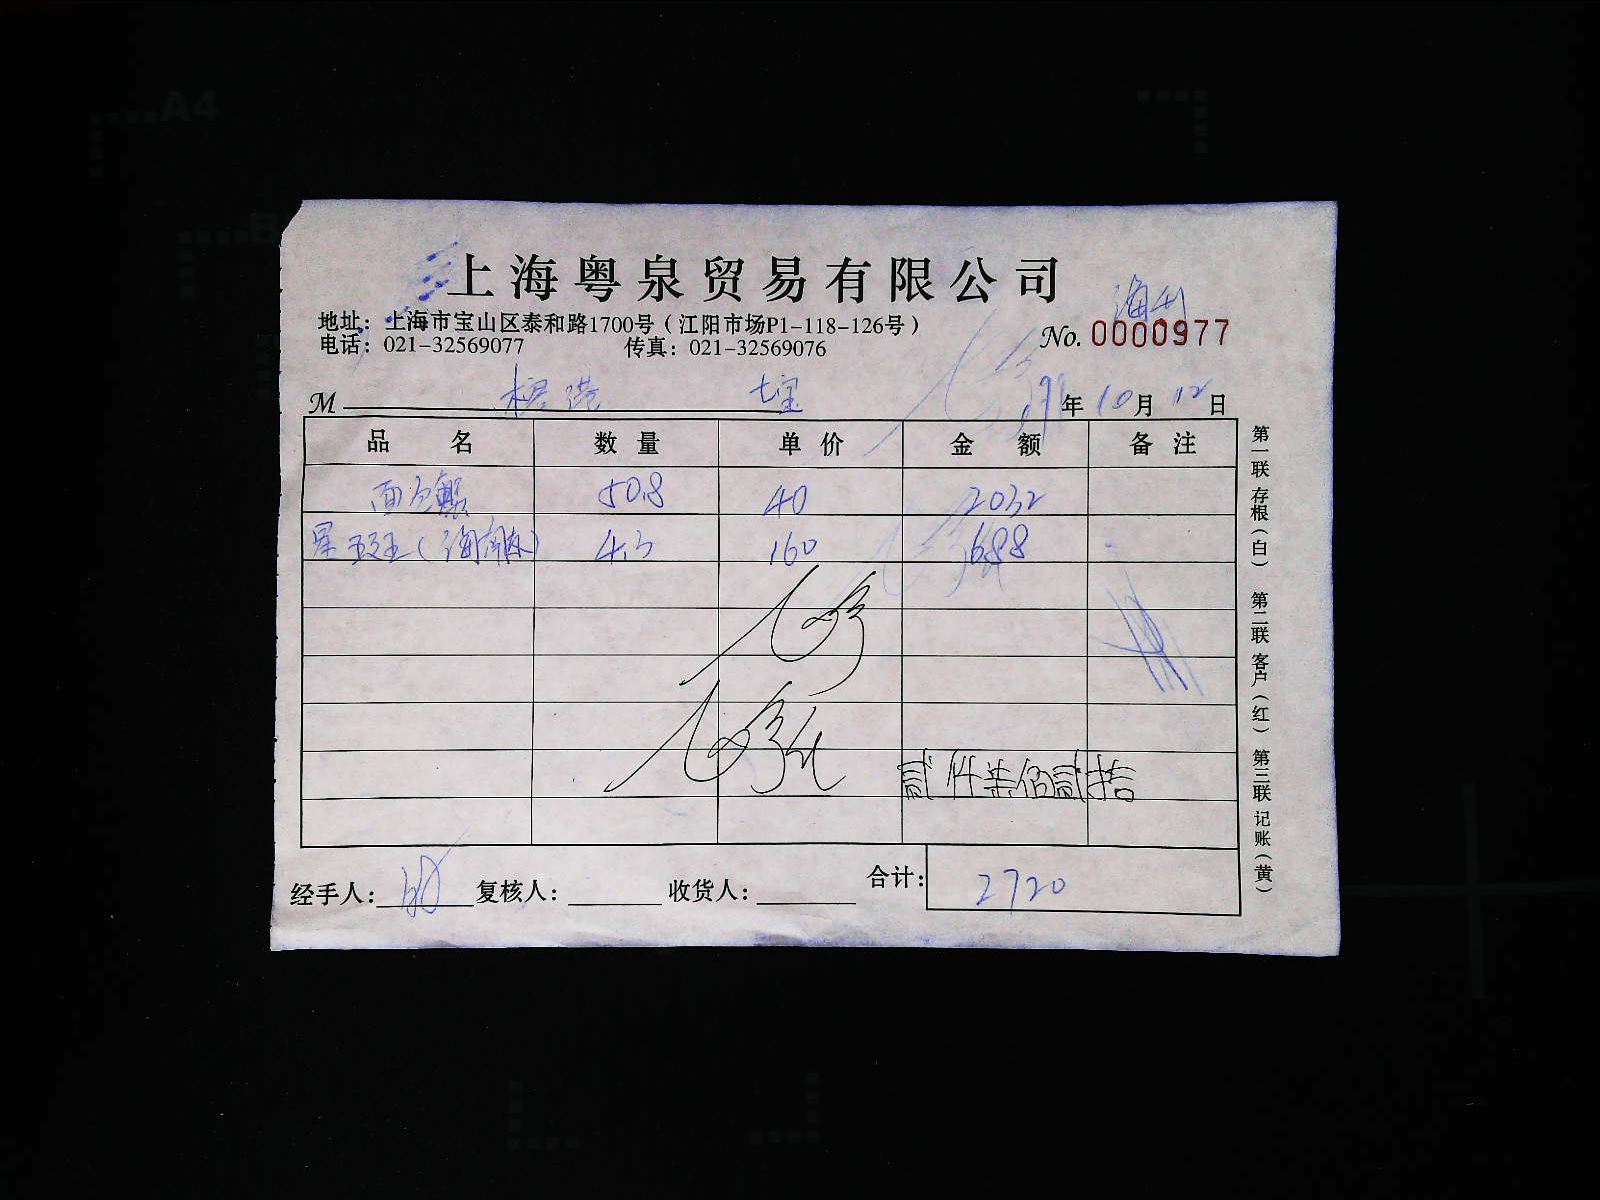 上海粤泉贸易有限公司
地址：上海市宝山区泰和路1700号（江阳市场P1-118-126号）
电话：021-32569077 传真：021-32569076
No. 0000977
M 七宝 年 10 月 12 日
品名 数量 单价 金额 备注
50.8 40 2032
星斑王 4.3 160 688
贰仟柒佰贰拾
经手人： 复核人： 收货人： 合计： 2720
第一联 存根（白） 第二联 客户（红） 第三联 记账（黄）
A4